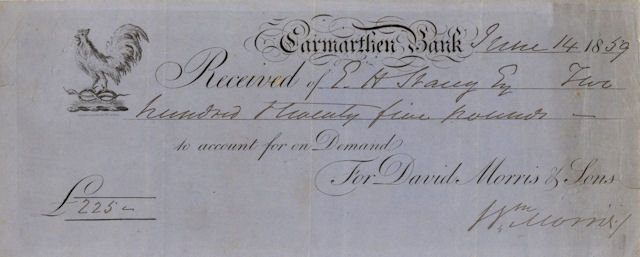 Carmarthen Bank June 14 1859
Received of E. H. Stacey Esq Two
hundred & twenty five pounds —
to account for on Demand
For David Morris & Sons
£225–
Wm Morris